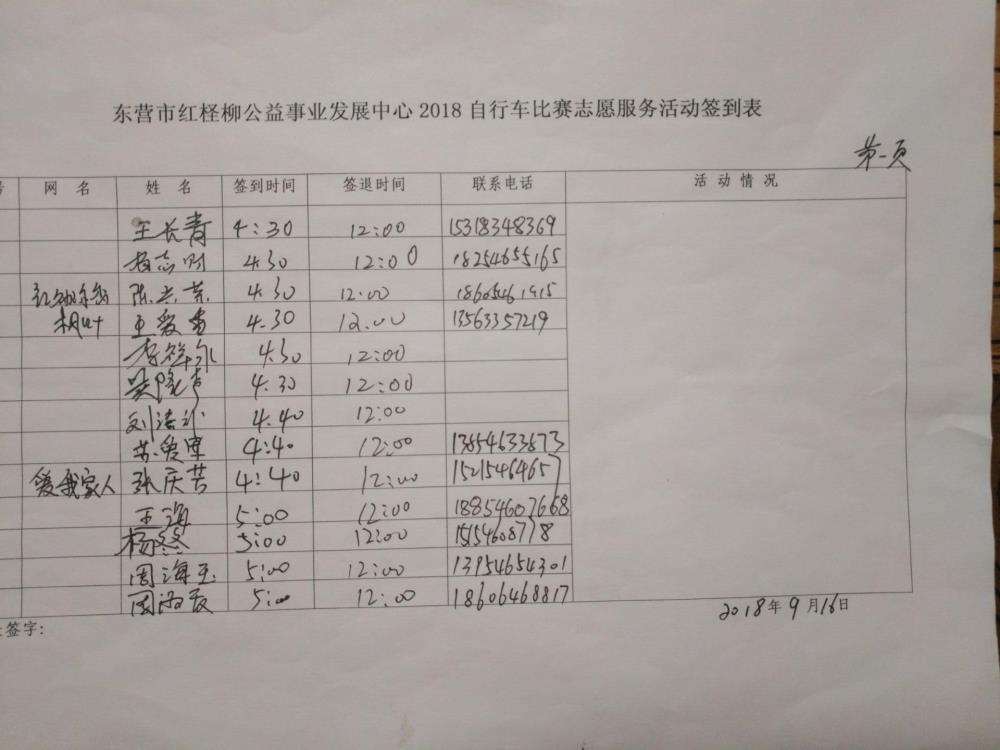 东营市红柽柳公益事业发展中心2018自行车比赛志愿服务活动签到表
第一页
号 网名 姓名 签到时间 签退时间 联系电话 活动情况
王长青 4:30 12:00 15318348369
4:30 12:00 18254655165
陈兰荣 4.30 12:00 18605461915
王爱香 4.30 12.00 13563357219
4:30 12:00
4.30 12:00
刘 4.40 12:00
苏爱军 4:40 12:00 13854633873
爱我家人 张庆芳 4:40 12:00 15215464657
王海 5:00 12:00 18854607668
杨 5:00 12:00 15154608778
周海玉 5:00 12:00 13954654301
周 5:00 12:00 18606468817
2018年9月16日
签字: